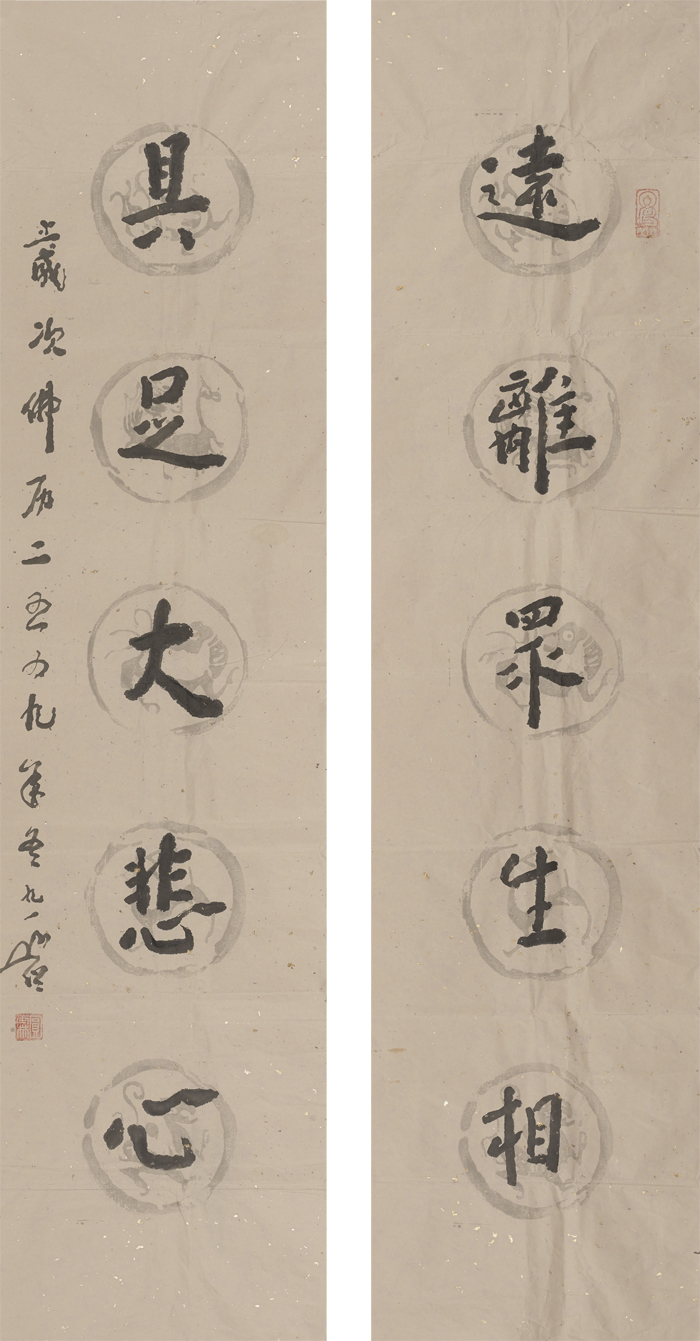 遠離眾生相
具足大悲心
歲次佛历二五五九年冬九